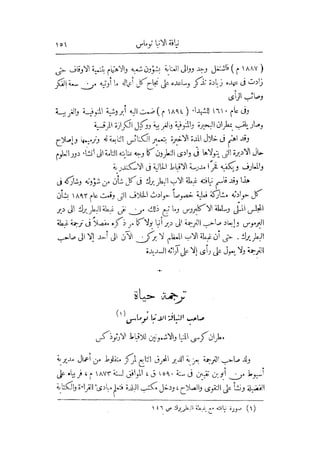 نيافة الانبا توماس
١٥٦
(١٨٨٧ م) فاشتغل وجد ووالى العناية بشؤون شعبه والاهتمام بتنمية الاوقاف حتى
زادت فى عهده زيادة تذكر وساعده على نجاح كل أعماله ما أوتيه من سعة الفكر
وصائب الرأى
وفى عام ١٦١٠ للشهداء (١٨٩٤ م) ضمت اليه أبروشية المنوفية والغربية
وصار يلقب بمطران البحيرة والمنوفية والغربية ووكيل الكرازة المرقسية
وقد اهتم فى خلال المدة الاخيرة بتعمير الكنائس التابعة له وترميمها وإصلاح
حال الاديرة التى يتولاها فى وادى النطرون كما وجه عنايته التامة الى أنشاء دور العلوم
والمعارف ويكفيه فخراً مدرسة الاقباط الحالية فى الاسكندرية
هذا وقد قاسم نيافته غبطة الاب البطريرك فى كل شأن من شؤونه وشاركه فى
كل حوادثه مشاركة فعلية خصوصاً حوادث الخلاف التى وقعت عام ١٨٩٣ بشأن
المجلس الملى وسلطة الاكليروس وما تبع ذلك من نفى غبطة البطريرك الى دير
البرموس وإبعاد صاحب الترجمة الى دير أنبا بولا كما مر ذكره مفصلاً فى ترجمة غبطة
البطريرك . حتى أن غبطة الاب المعظم لا يركن الآن الى أحد إلا الى صاحب
الترجمة ولا يعول على رأى إلا على آرائه السديدة
ترجمة حياة
صاحب النيافة الانبا توماس (١)
مطران كرسى المنيا والاشمونين للاقباط الارثوذكس
ولد صاحب الترجمة بعزبة الدير المحرق التابع لمركز منفلوط من أعمال مديرية
أسيوط من أبوين تقيين فى سنة ١٥٩٠ ق ، الموافق لسنة ١٨٧٣ م ، فربياه على
الفضيلة ونشأ على التقوى والصلاح ، ودخل مكتب البلدة فتعلم مبادئ القراءة والكتابة
(١) صورة نيافته مع غبطة البطريرك ص ١٤٦